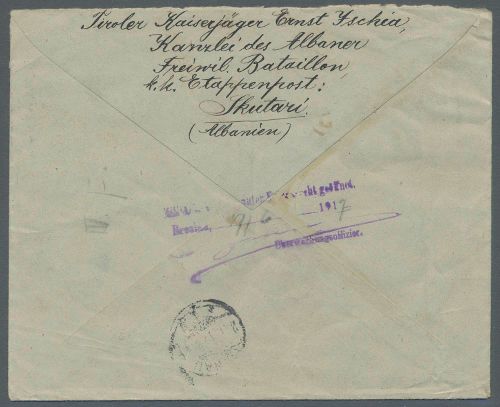 Tiroler Kaiserjäger Ernst Ischia,
Kanzlei des Albaner
Freiwil. Bataillon,
k.u. Etappenpost:
Skutari.
(Albanien)
geöffnet.
19/6 1917
Überwachungsoffizier.